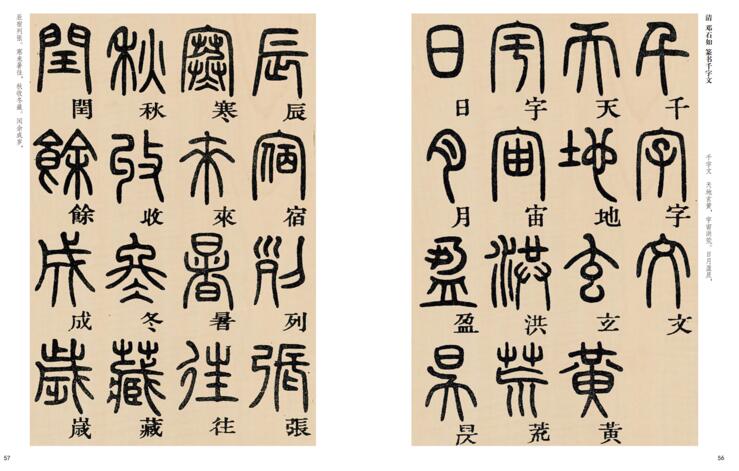 清 邓石如 篆书千字文
千字文 天地玄黄，宇宙洪荒。日月盈昃，
千字文
天地玄黃
宇宙洪荒
日月盈昃
56
辰宿列張
寒來暑往
秋收冬藏
閏餘成歲
辰宿列张。寒来暑往，秋收冬藏。闰余成岁，
57